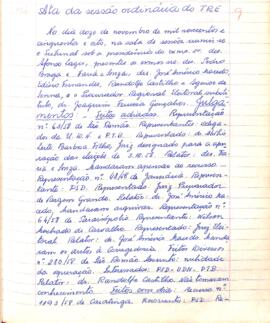 Ata da sessão ordinária do TRE
9
Ao dia doze de novembro de mil novecentos e
cinquenta e oito, na sala de sessões reuniu-se
o Tribunal sob a presidência do exmo. sr. des.
Afonso Lages, presentes os exmos. srs. des. Pedro
Braga e Faria e Souza, drs. José Américo Macedo,
Cândido Martins
e o Procurador Regional Eleitoral substitu-
to, dr. Joaquim Ferreira Gonçalves. Julga-
mentos - Feitos adiados. Representação
nº 64/58 de São Romão. Representantes: delega-
dos da U.D.N. e P.T.B. Representado: dr.
Barbosa Filho, juiz designado para a apu-
ração das eleições de 3.10.58. Relator: des. Fa-
ria e Souza. Mandaram apensar ao recurso -
Representação nº 68/58 de Januária. Represen-
tante: PSD. Representado: Juiz Preparador
de Vargem Grande. Relator: dr. José Américo Ma-
cedo, mandaram arquivar. Representação nº
64/58 de Sacrosópolis. Representante: Wilson
Machado de Carvalho. Representado: Juiz Elei-
toral. Relator: dr. José Américo Macedo. Manda-
ram os autos à Corregedoria. Feitos Diversos -
nº 280/58 de São Romão. Assunto: nulidade
da apuração. Interessados: PSD-UDN-PTB.
Relator: dr. Não tomaram
conhecimento. Feitos com dia: Recurso nº
1092/58 de Caratinga. Recorrente: PSD. Re-